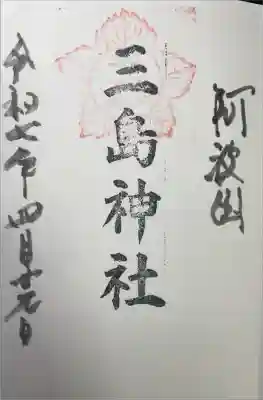 阿波山
三島神社
令和七年四月十七日